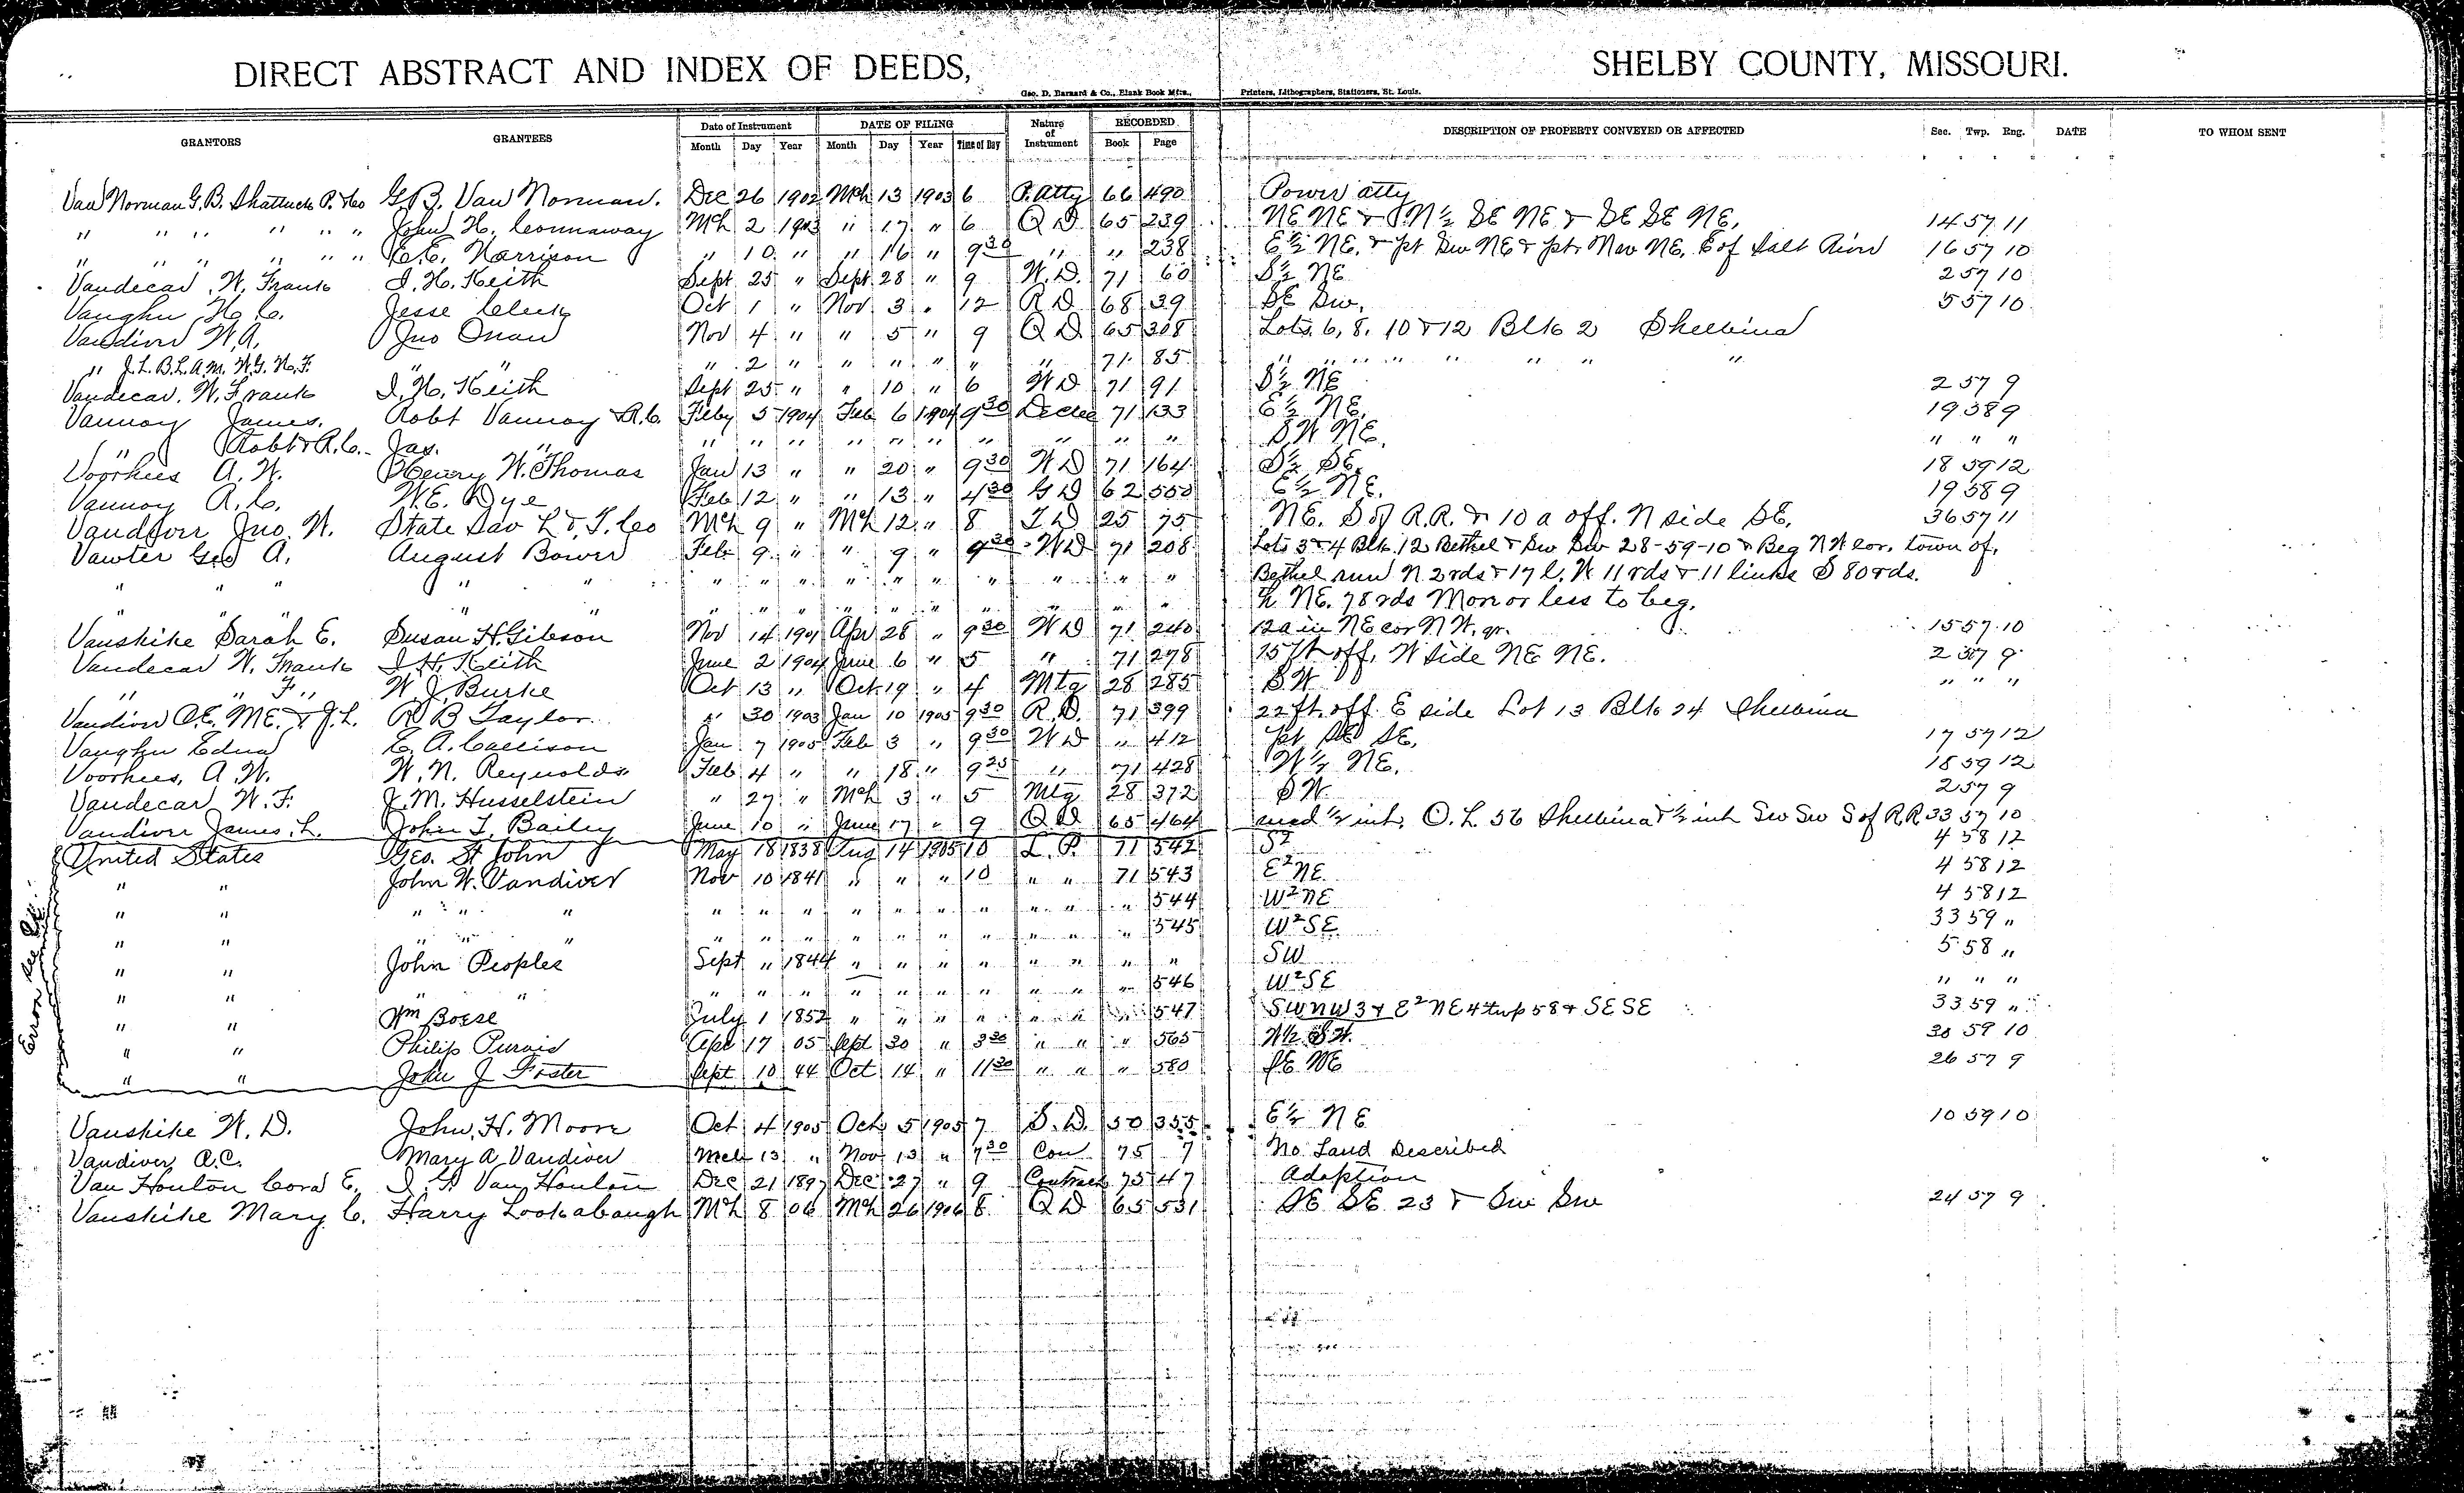 DIRECT ABSTRACT AND INDEX OF DEEDS, SHELBY COUNTY, MISSOURI.
Geo. D. Barnard & Co., Blank Book Mfrs., Printers, Lithographers, Stationers, St. Louis.
GRANTORS GRANTEES Date of Instrument DATE OF FILING Nature of Instrument RECORDED DESCRIPTION OF PROPERTY CONVEYED OR AFFECTED Sec. Twp. Rng. DATE TO WHOM SENT
Month Day Year Month Day Year Time of Day Book Page
Van Norman G.B. Shattuck P. & Co G.B. Van Norman. Dec 26 1902 Mch 13 1903 6 P. Atty 66 490 Power atty
" " " " " " John H. Connaway Mch 2 1903 " 17 " 6 Q D 65 239 NE NE & N½ SE NE & SE SE NE, 14 57 11
" " " " " " E.E. Harrison " 10 " " 16 " 9 30 " " 238 E½ NE. & pt Sw NE & pt Nw NE, E of Salt River 16 57 10
Vandecar, W. Frank I. H. Keith Sept 25 " Sept 28 " 9 W. D. 71 60 S½ NE 2 57 10
Vaughn H. C. Jesse Cleek Oct 1 " Nov 3 " 12 R D 68 39 SE Sw, 5 57 10
Vandiver W.A. Jno Onan Nov 4 " " 5 " 9 Q D 65 308 Lots, 6, 8, 10 & 12 Blk 2 Shelbina
" J.L. B.L. A.M. W.G. H.F. " " 2 " " " " " " 71 85 " " " " " " " "
Vandecar, W. Frank I. H. Keith Sept 25 " " 10 " 6 W D 71 91 S½ NE 2 57 9
Vannoy James, Robt Vannoy & A.C. Feby 5 1904 Feb 6 1904 9 30 Decree 71 133 E½ NE, 19 58 9
" Robt & A.C. Jas. " " " " " " " " " " " S W NE, " " "
Voorhies A. W. Henry W. Thomas Jan 13 " " 20 " 9 30 W D 71 164 S½ SE, 18 59 12
Vannoy A. C. W.E. Dye Feb 12 " " 13 " 4 30 G D 62 550 E½ NE. 19 58 9
Vandiver Jno. W. State Sav L & T. Co Mch 9 " Mch 12 " 8 T D 25 75 NE. S of R.R. & 10 a off. N side SE, 36 57 11
Vawter Geo A. August Bower Feb 9 " " 9 " 9 30 WD 71 208 Lots 3 & 4 Blk. 12 Bethel & Sw Sw 28-59-10 & Beg NW cor. town of,
" " " " " " " " " " " " " " " " Bethel run N 2 rds & 17 l. W 11 rds & 11 links S 80 rds.
" " " " " " " " " " " " " " " " NE. 78 rds More or less to beg.
Vanskike Sarah E. Susan H. Gibson Nov 14 1901 Apr 28 " 9 30 W D 71 240 12a in NE cor NW. qr. 15 57 10
Vandecar W. Frank I. H. Keith June 2 1904 June 6 " 5 " 71 278 15 ft off, W side NE NE. 2 57 9
" " F " W. J. Burke Oct 13 " Oct 19 " 4 Mtg 28 285 S.W " " "
Vandiver O.E. M.E. & J.L. R B Taylor " 30 1903 Jan 10 1905 9 30 R. D. 71 399 22 ft. off E side Lot 13 Blk 24 Shelbina
Vaughn Edna E. A. Callison Jan 7 1905 Feb 3 " 9 30 W D " 412 pt SE SE, 17 59 12
Voorhies, A. W. W. N. Reynolds Feb 4 " " 18 " 9 25 " 71 428 W½ NE. 18 59 12
Vandecar W. F. J. M. Husselstein " 27 " Mch 3 " 5 Mtg 28 372 S W 2 57 9
Vandiver James, L. John T. Bailey June 10 " June 17 " 9 Q D 65 464 und ½ int, O. L. 56 Shelbina & ½ int Sw Sw S of R R 33 57 10
United States Geo. St John May 18 1838 Aug 14 1905 10 L. P. 71 542 S2 4 58 12
" " John W. Vandiver Nov 10 1841 " " " 10 " " 71 543 E2 NE 4 58 12
" " " " " " " " " " " " " " " 544 W2 NE 4 58 12
" " " " " " " " " " " " " " " 545 W2 SE 33 59 "
" " John Peoples Sept " 1844 " " " " " " " " SW 5 58 "
" " " " " " " " " " " " " " 546 W2 SE " " "
" " Wm Boese July 1 1852 " " " " " " " 547 SW NW 3 & E2 NE 4 twp 58 & SE SE 33 59 "
" " Philip Purvis Apr 17 05 Sept 30 " 3 30 " " " 565 W½ SW. 30 59 10
" " John J Foster Sept 10 44 Oct 14 " 11 30 " " " 580 SE NE 26 57 9
Error See
Vanskike W. D. John, H. Moore Oct 4 1905 Oct 5 1905 7 S. D. 50 355 E½ NE 10 59 10
Vandiver A.C. Mary A Vandiver Mch 13 " Nov 13 " 7 30 Con 75 7 No Land Described
Van Houton Cora E. I. F. Van Houton Dec 21 1897 Dec 27 " 9 Contract 75 47 Adoption
Vanskike Mary C. Harry Lookabaugh Mch 8 06 Mch 26 1906 8 Q D 65 531 SE SE 23 & Sw Sw 24 57 9